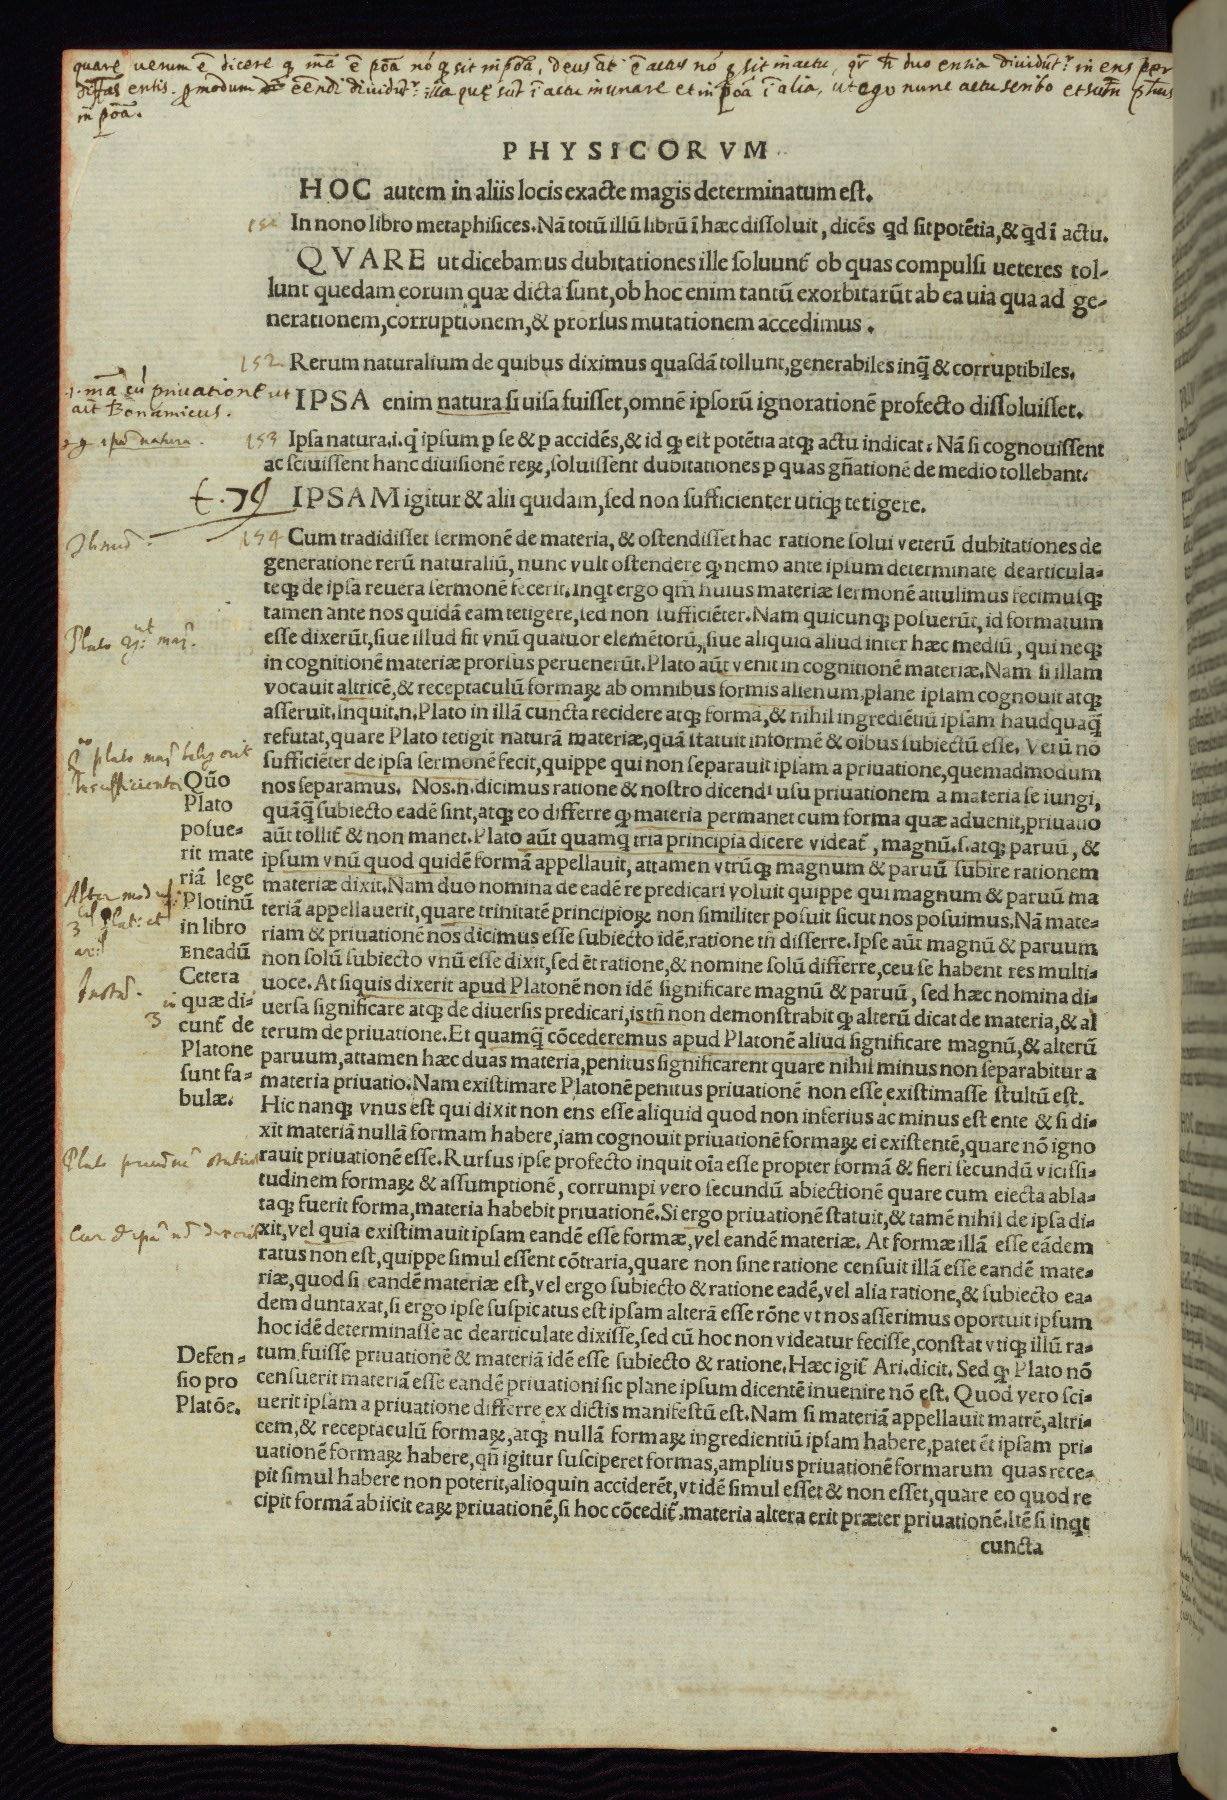 quare verum ē dicere q mā ē pōa nō q sit in pōa, deus at ē actus nō q sit in actu,
in pōa.
PHYSICORVM
HOC autem in aliis locis exacte magis determinatum est.
In nono libro metaphisices. Nā totū illū librū ī hæc dissoluit, dicēs qd sit potētia, & qd ī actu.
QVARE ut dicebamus dubitationes ille soluunt̄ ob quas compulsi ueteres tol-
lunt quedam eorum quæ dicta sunt, ob hoc enim tantū exorbitarūt ab ea uia qua ad ge-
nerationem, corruptionem, & prorsus mutationem accedimus.
152 Rerum naturalium de quibus diximus quasdā tollunt, generabiles inq̄ & corruptibiles.
mā cū privatione ut
ait Bonamicus.
IPSA enim natura si uisa fuisset, omnē ipsorū ignorationē profecto dissoluisset.
153 Ipsa natura .i. q̄ ipsum p se & p accidēs, & id qꝫ est potētia atqꝫ actu indicat. Nā si cognouissent
ac sciuissent hanc diuisionē reꝝ, soluissent dubitationes p quas gn̄ationē de medio tollebant.
t. 79
IPSAM igitur & alii quidam, sed non sufficienter utiqꝫ tetigere.
154 Cum tradidisset sermonē de materia, & ostendisset hac ratione solui veterū dubitationes de
generatione rerū naturaliū, nunc vult ostendere qꝫ nemo ante ipsum determinate dearticula-
teqꝫ de ipsa reuera sermonē fecerit. Inqt ergo qm̄ huius materiæ sermonē attulimus fecimusqꝫ
tamen ante nos quidā eam tetigere, sed non sufficiēter. Nam quicunqꝫ posuerūt, id formatum
esse dixerūt, siue illud sit vnū quatuor elemētorū, siue aliquid aliud inter hæc mediū, qui neqꝫ
in cognitionē materiæ prorsus peruenerūt. Plato aūt venit in cognitionē materiæ. Nam si illam
vocauit altricē, & receptaculū formaꝝ ab omnibus formis alienum, plane ipsam cognouit atqꝫ
asseruit. Inquit .n. Plato in illā cuncta recidere atqꝫ formā, & nihil ingrediētiū ipsam haudquaq̄
refutat, quare Plato tetigit naturā materiæ, quā statuit informē & oībus subiectū esse. Verū nō
sufficiēter de ipsa sermonē fecit, quippe qui non separauit ipsam a priuatione, quemadmodum
nos separamus. Nos .n. dicimus ratione & nostro dicendi usu priuationem a materia seiungi,
quāq̄ subiecto eadē sint, atqꝫ eo differre qꝫ materia permanet cum forma quæ aduenit, priuatio
aūt tollit̄ & non manet. Plato aūt quamq̄ tria principia dicere videat̄, magnū .s. atqꝫ paruū, &
ipsum vnū quod quidē formā appellauit, attamen vtrūqꝫ magnum & paruū subire rationem
materiæ dixit. Nam duo nomina de eadē re predicari voluit quippe qui magnum & paruū ma
teriā appellauerit, quare trinitatē principioꝝ non similiter posuit sicut nos posuimus. Nā mate-
riam & priuationē nos dicimus esse subiecto idē, ratione tn̄ disserre. Ipse aūt magnū & paruum
non solū subiecto vnū esse dixit, sed ēt ratione, & nomine solū differre, ceu se habent res multi-
uoce. At siquis dixerit apud Platonē non idē significare magnū & paruū, sed hæc nomina di-
uersa significare atqꝫ de diuersis predicari, is tn̄ non demonstrabit qꝫ alterū dicat de materia, & al
terum de priuatione. Et quamq̄ cōcederemus apud Platonē aliud significare magnū, & alterū
paruum, attamen hæc duas materia, penitus significarent quare nihil minus non separabitur a
materia priuatio. Nam existimare Platonē penitus priuationē non esse existimasse stultū est.
Hic nanqꝫ vnus est qui dixit non ens esse aliquid quod non inferius ac minus est ente & si di-
xit materiā nullā formam habere, iam cognouit priuationē formaꝝ ei existentē, quare nō igno
rauit priuationē esse. Rursus ipse profecto inquit oīa esse propter formā & fieri secundū vicissi-
tudinem formaꝝ & assumptionē, corrumpi vero secundū abiectionē quare cum eiecta abla-
taqꝫ fuerit forma, materia habebit priuationē. Si ergo priuationē statuit, & tamē nihil de ipsa di-
xit, vel quia existimauit ipsam eandē esse formæ, vel eandē materiæ. At formæ illā esse eādem
ratus non est, quippe simul essent cōtraria, quare non sine ratione censuit illā esse eandē mate-
riæ, quod si eandē materiæ est, vel ergo subiecto & ratione eadē, vel alia ratione, & subiecto ea-
dem duntaxat, si ergo ipse suspicatus est ipsam alterā esse rōne vt nos asserimus oportuit ipsum
hoc idē determinasse ac dearticulate dixisse, sed cū hoc non videatur fecisse, constat vtiqꝫ illū ra-
tum fuisse priuationē & materiā idē esse subiecto & ratione. Hæc igit̄ Ari. dicit. Sed qꝫ Plato nō
censuerit materiā esse eandē priuationi sic plane ipsum dicentē inuenire nō est. Quod vero sci-
uerit ipsam a priuatione differre ex dictis manifestū est. Nam si materiā appellauit matrē, altri-
cem, & receptaculū formaꝝ, atqꝫ nullā formaꝝ ingredientiū ipsam habere, patet ēt ipsam pri-
uationē formaꝝ habere, qn̄ igitur susciperet formas, amplius priuationē formarum quas rece-
pit simul habere non poterit, alioquin acciderēt, vt idē simul esset & non esset, quare eo quod re
cipit formā abiicit eaꝝ priuationē, si hoc cōcedit̄, materia altera erit præter priuationē. Itē si inqt
cuncta
Quō
Plato
posue-
rit mate
riā lege
Plotinū
in libro
Eneadū
Cetera
quæ di-
cunt̄ de
Platone
sunt fa-
bulæ.
Defen-
sio pro
Platōe.